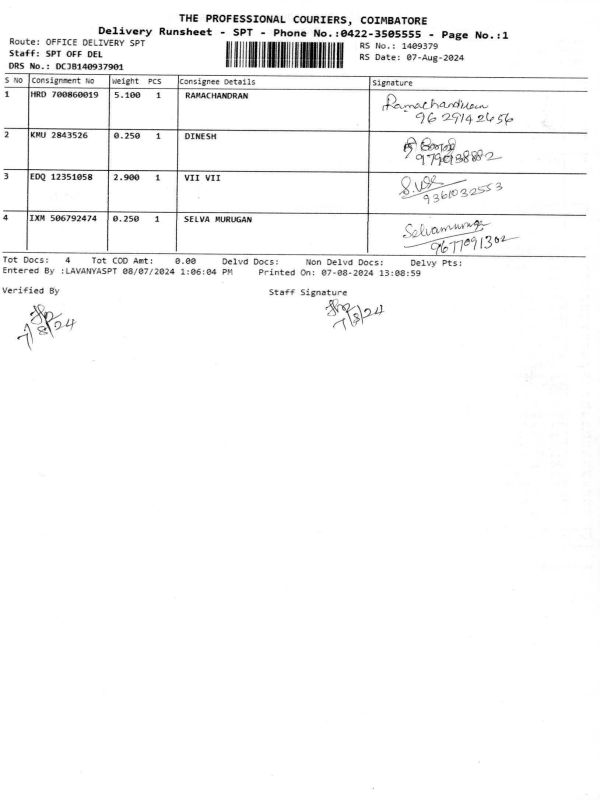 THE PROFESSIONAL COURIERS, COIMBATORE
Delivery Runsheet - SPT - Phone No.:0422-3505555 - Page No.:1
Route: OFFICE DELIVERY SPT
RS No.: 1409379
Staff: SPT OFF DEL
RS Date: 07-Aug-2024
DRS No.: DCJB140937901
S No Consignment No Weight PCS Consignee Details Signature
1 HRD 700860019 5.100 1 RAMACHANDRAN Ramachandran
9629142656
2 KMU 2843526 0.250 1 DINESH
3 EDQ 12351058 2.900 1 VII VII
9361032553
4 IXM 506792474 0.250 1 SELVA MURUGAN Selvamuruga
9677091302
Tot Docs: 4 Tot COD Amt: 0.00 Delvd Docs: Non Delvd Docs: Delvy Pts:
Entered By :LAVANYASPT 08/07/2024 1:06:04 PM Printed On: 07-08-2024 13:08:59
Verified By Staff Signature
7/8/24 7/8/24